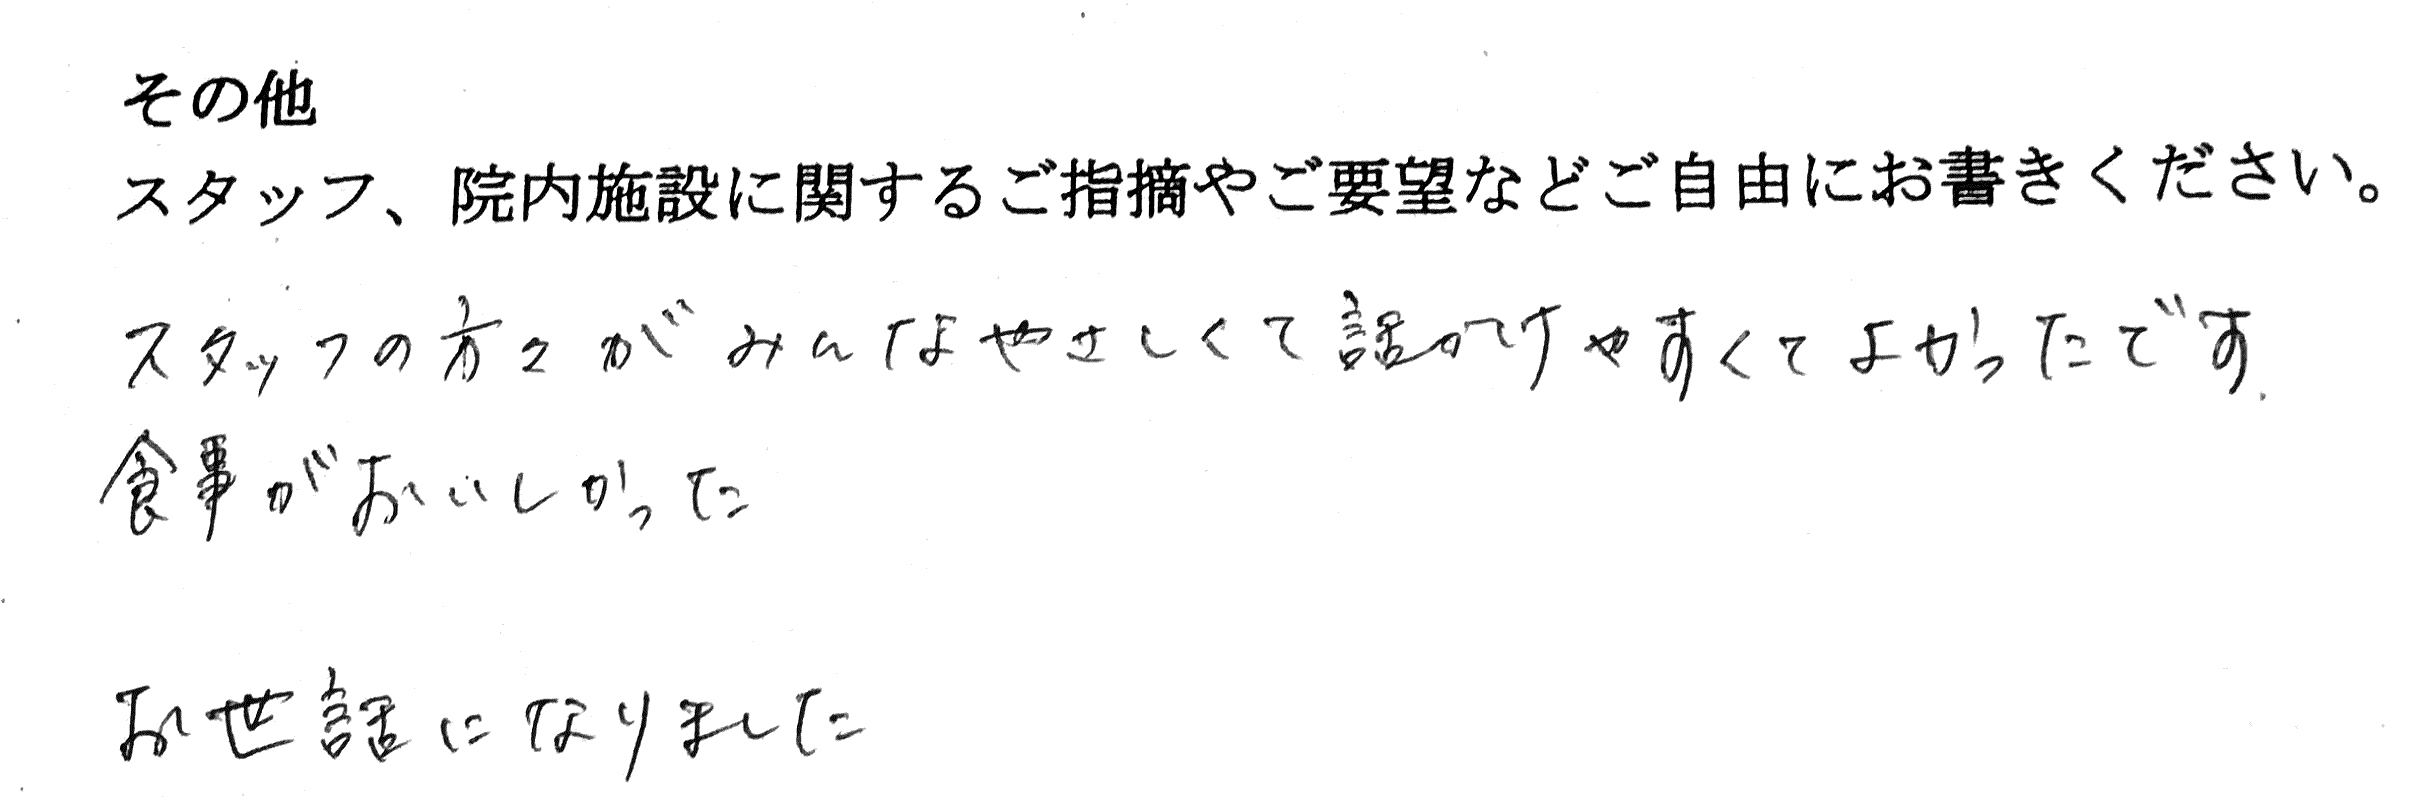 その他
スタッフ、院内施設に関するご指摘やご要望などご自由にお書きください。
スタッフの方々がみんなやさしくて話かけやすくてよかったです
食事がおいしかった
お世話になりました